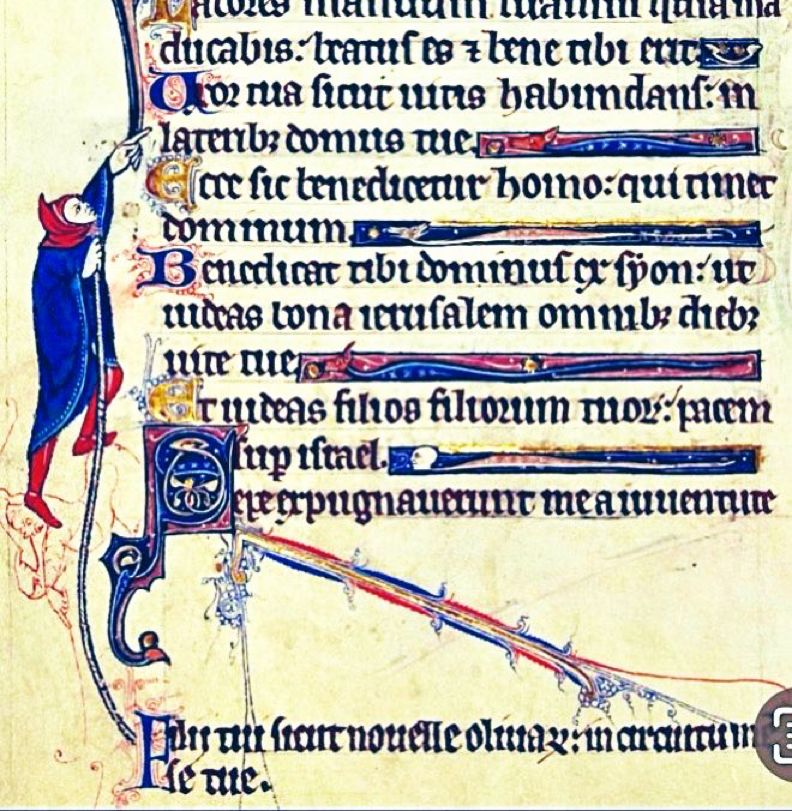 Labores manuum tuarum quia ma
ducabis: beatus es ⁊ bene tibi erit.
Uxor tua sicut uitis habundans: in
lateribꝫ domus tue.
Ecce sic benedicetur homo: qui timet
dominum.
Benedicat tibi dominus ex syon: ut
uideas bona ierusalem omnibꝫ diebꝫ
uite tue.
Et uideas filios filiorum tuoꝝ: pacem
suꝑ israel.
Sepe expugnauerunt me a iuuentute
Filii tui sicut nouelle oliuaꝝ: in circuitu m
se tue.